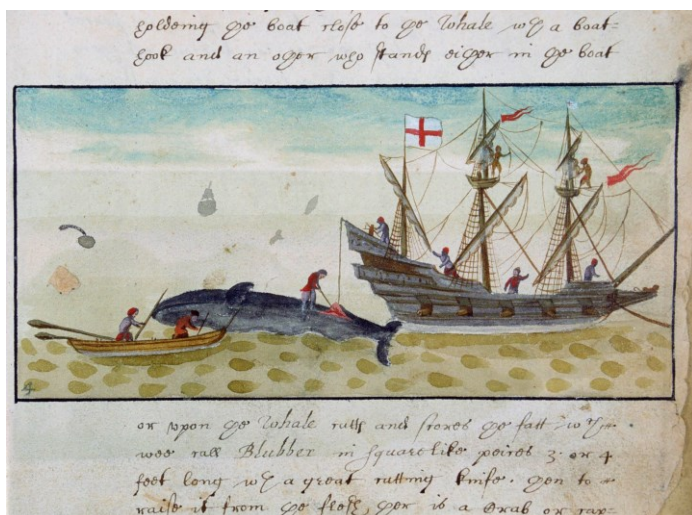 holdeing ye boat close to ye Whale wth a boat=
hook and an oyer who stands eiyer in ye boat
4
or upon ye Whale cutts and scores ye fatt wch
wee call Blubber in square like peices 3 or 4
feet long wth a great cutting knife. yen to
raise it from ye flesh, yer is a Crab or cap=